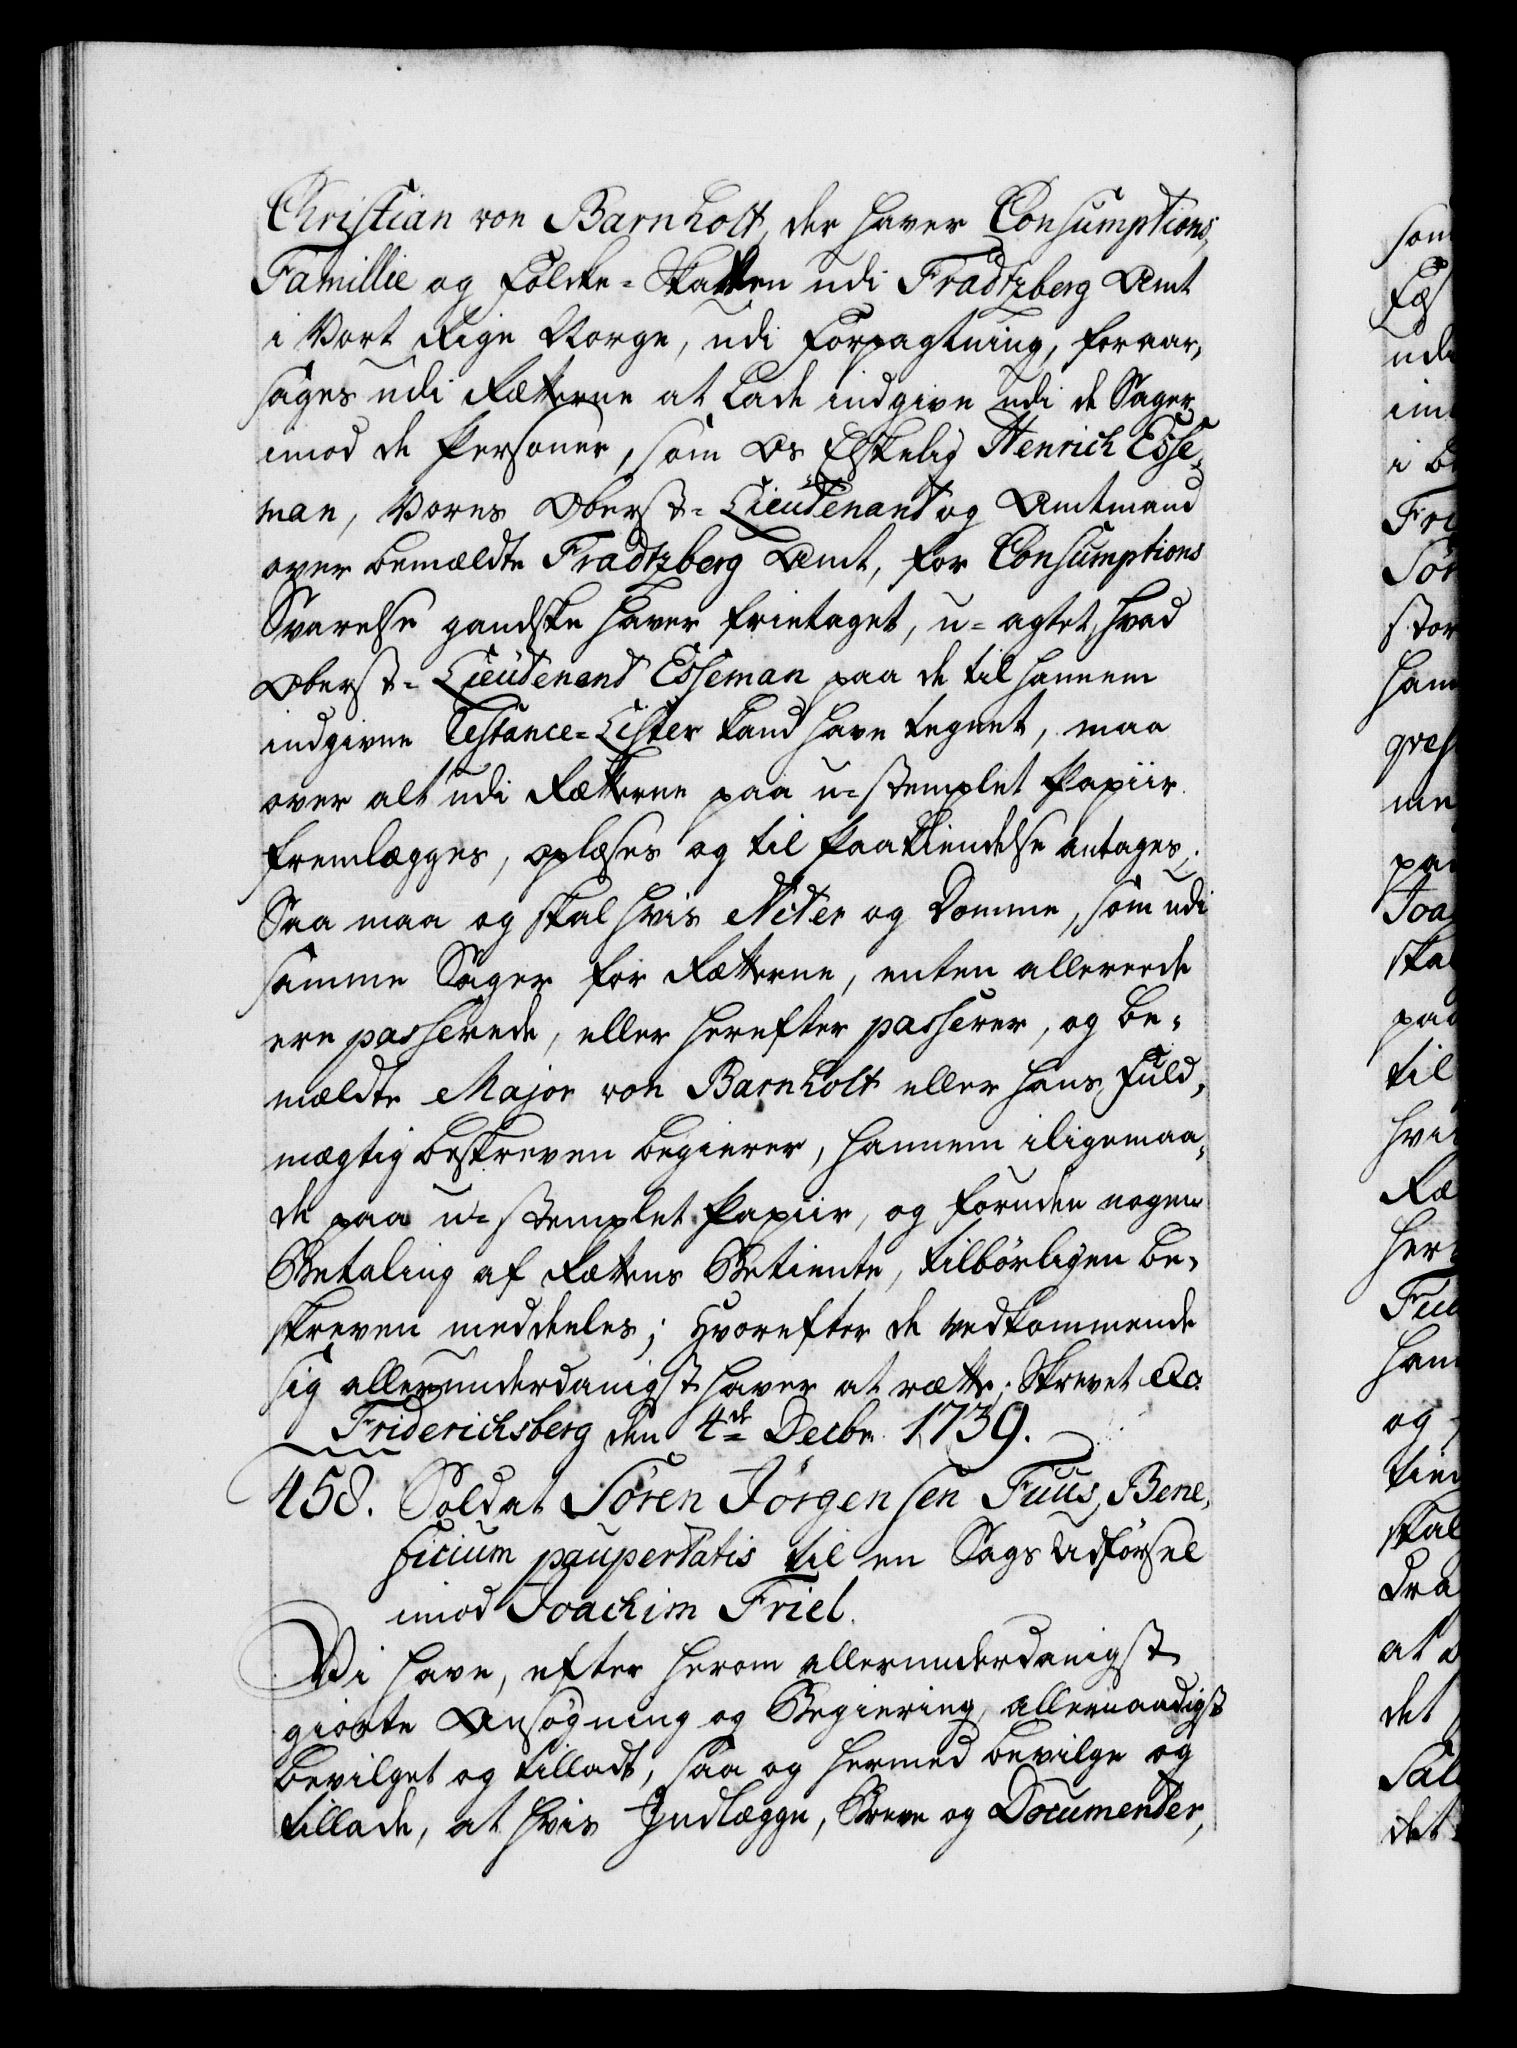 Christian von Barnholt, der haver Consumptions,
Famillie og Folcke-Skatten udi Fradtzberg Amt
i Vort Rige Norge, udi Forpagtning, foraar,
sages udi Rætterne at lade indgive udi de Sager
imod de Personer, som Os Elskelig Henrich Esse,
man, Vores Oberst-Lieutenant og Amtmand
over bemældte Fradtzberg Amt, for Consumptions
Svarelse gandske haver frietaget, u-agtet, hvad
Oberst-Lieutenant Esseman paa de til hannem
indgivne Restance-Lister kand have tegnet, maa
over alt udi Rætterne paa u-stemplet Papiir
fremlægges, oplæses og til Paakiendelse antages;
Saa maa og skal hvis Acter og Domme, som udi
samme Sager for Rætterne, enten allereede
ere passerede, eller herefter passerer, og be-
mældte Major von Barnholt eller hans Fuld,
mægtig beskreven begierer, hannem iligemaa,
de paa u-stemplet Papiir, og foruden nogen
Betaling af Rættens Betiente, tilbörligen be,
skreven meddeeles; Hvorefter de vedkommende
sig allerunderdanigst haver at rætte. Skrevet &c.
Friderichsberg den 4de Decbr 1739.
458. Soldat Sören Jörgensen Fuus, Bene,
ficium paupertatis til en Sags Udförsel
imod Joachim Friel.
Vi have, efter herom allerunderdanigst
giorte Ansögning og Begiering, allernaadigst
bevilget og tilladt, saa og hermed bevilge og
tillade, at hvis Indlægge, Breve og Documenter,